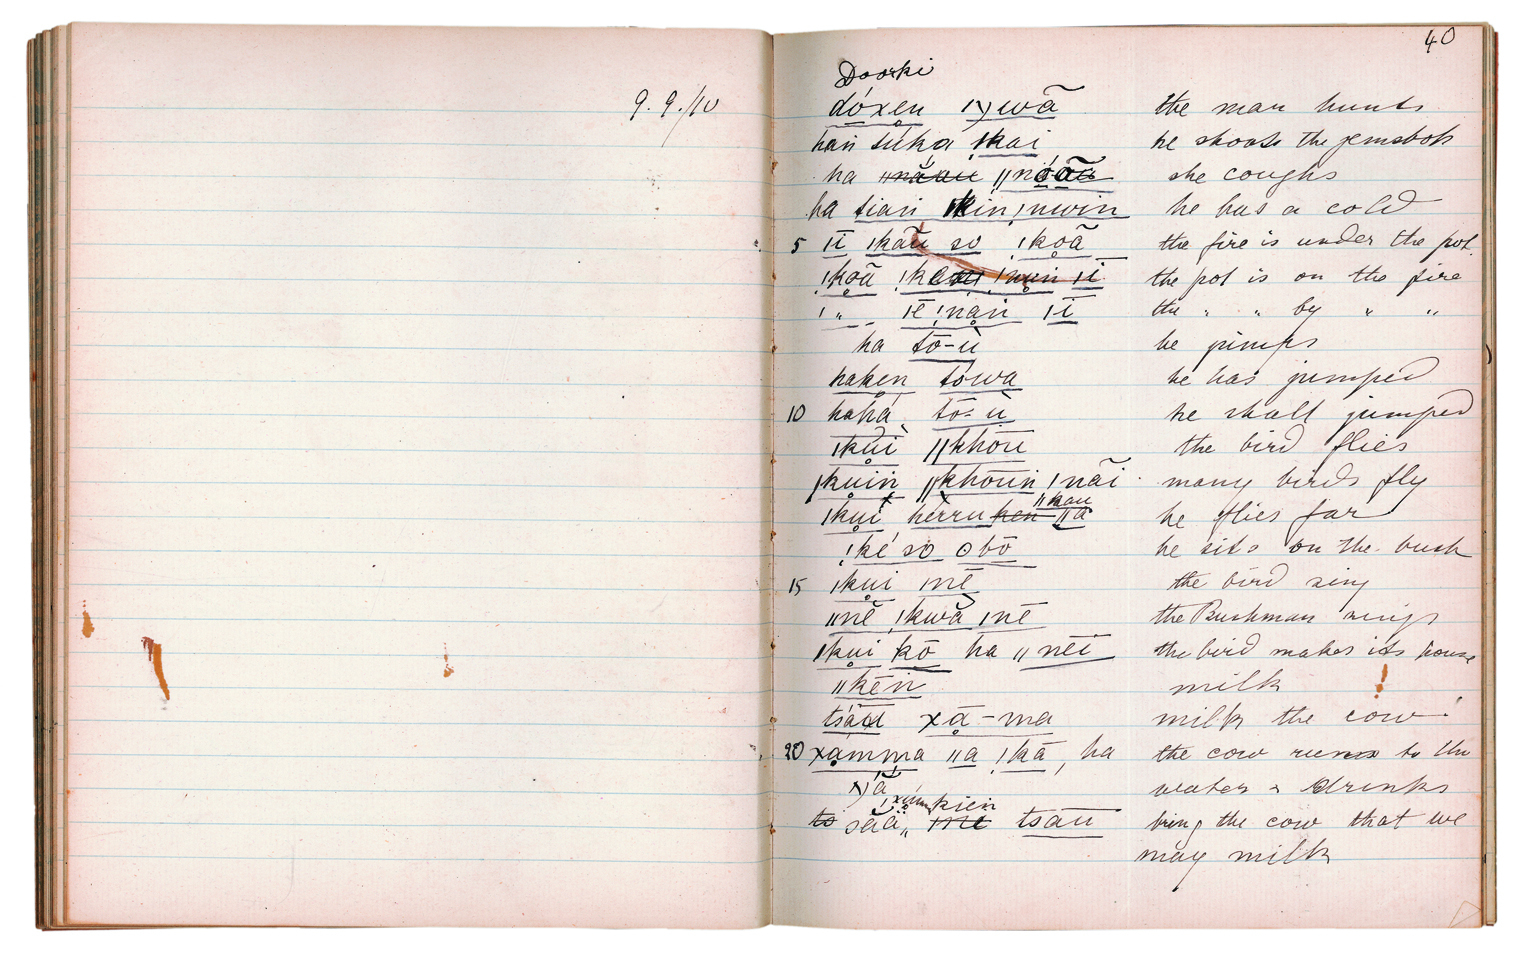 9. 9./10
40
Doorki
dóxen the man hunts
han súka ǃkai he shoots the gemsbok
ha she coughs
ha sian he has a cold
5 ǀī ǀkaũ so ǃkoā the fire is under the pot.
ǃkoā ǀī the pot is on the fire
ǃ " ǀē ǃnan ǀī the " " by " "
ha tō-ù he jumps
haken tówa he has jumped
10 hahá tō-ù he shall jumped
ǀkui ǁkhōu the bird flies
ǀkuin ǁkhōun ǃnãi many birds fly
ǁkau
ǀkui herru ken ǁa he flies far
ǃké so ʘbō he sits on the bush
15 ǀkui ǀnē the bird sing
ǁnē ǃkwā ǀnē the Bushman sings
ǀkui kō ha ǁnēi the bird makes its house
ǁkēn milk
xā-ma milk the cow
20 xamma ǁa ǃkā, ha the cow runs to the
water & drinks
kien
to sáā me tsau bring the cow that we
may milk